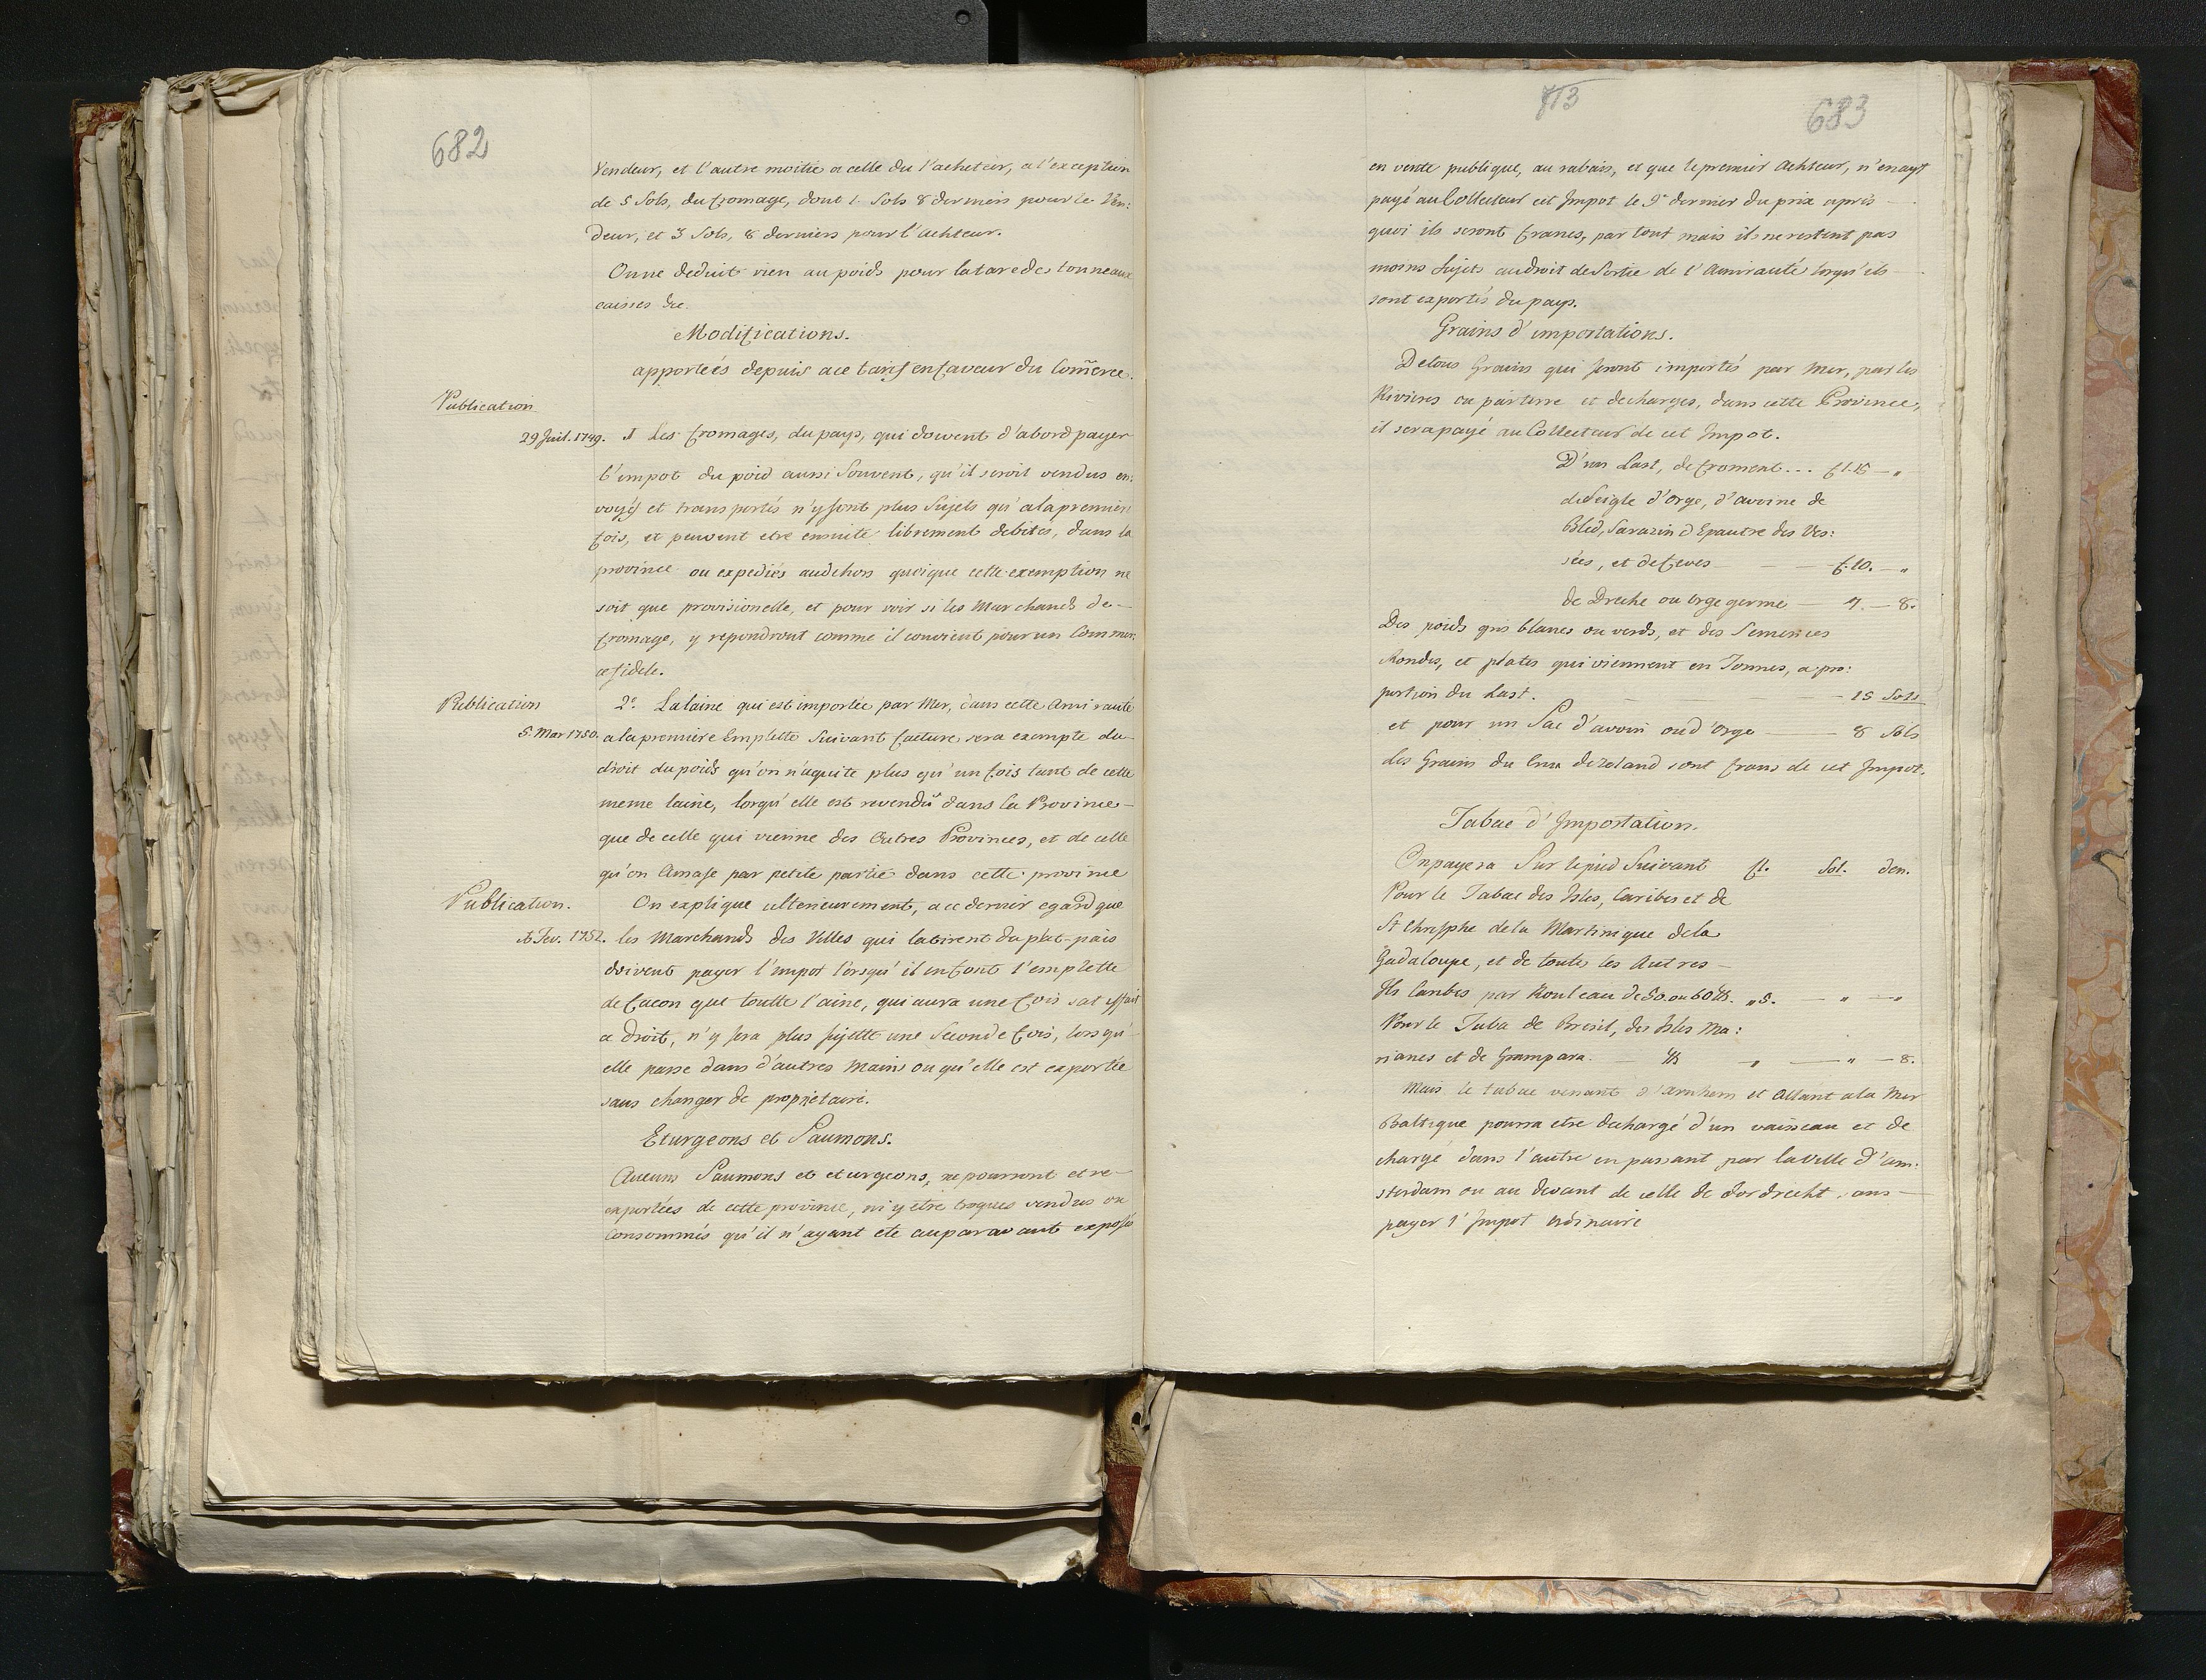 682
Vendeur, et l'autre moitie a celle du l'acheteur, a l'exception
de 5 Sols, du fromage, dont 1. Sols 8 derniers pour le Ven:
deur, et 3 Sols, 8 derniers pour l'achteur.
On ne deduit rien au poids pour la tare des tonneaux
caisses &c.
Modifications.
apporteés depuis a ce tarif en faveur du Com̃erce.
Publication
29 Juil. 1749. I Les fromages, du pays, qui doivent d'abord payer
l'impot du poid aussi Souvent, qu'il seroit vendus en:
voyés et transportés n'y sont plus Sujets qu'a la premiere
fois, et peuvent etre ensuite librement debités, dans la
province ou expediés au dehors quoique cette exemption ne
soit que provisionelle, et pour voir si les Marchands de
fromage, y repondront comme il convient pour un Commer:
ce fidele.
Publication
2.° La laine qui est importée par Mer, dans cette Amirauté
5. Mar 1750. a la premiere Emplette Suivant facture, sera exempte du
droit du poids qu'on n'aquite plus qu'un fois tant de cette
meme laine, lorqu'elle est revendu dans la Province
que de celle qui vienne des Autres Provinces, et de celle
qu'on Amase par petite partie dans cette province
Publication.
On explique ulterieurement, a ce dernier egard que
Fev. 1752. les Marchands des Villes qui la tirent du plat-pais
doivent payer l'impot lorsqu'il en font l'emplette
de facon que toutte l'aine, qui aura une fois satisfait
a droit, n'y sera plus sujette une Seconde fois, lorsqu'
elle passe dans d'autres Mains ou qu'elle est exportée
sans changer de proprietaire.
Eturgeons et Saumons.
Aucuns Saumons et eturgeons, ne pourront etre
exportées de cette province, ni y etre troqués vendus ou
Consommés qu'il n'ayant ete auparavant exposés
713
683
en vente publique, au rabais, et que le premier Achteur, n'en ayt
payé au Collecteur cet Impot le 9e dernier du prix aprés
quoi ils seront francs, par tout mais ils ne restent pas
moins Sujets au droit de Sortie de l'Amirauté lorqu'ils
sont exportés du pays.
Grains d'importations.
De tous Grains qui seront importés par Mer, par les
Rivieres ou par terre et decharges, dans cette Province,
il sera payé au Collecteur de cet Impot.
D'un Last, de froment... f 1.15 — „
de Seigle d'orge, d'avoine de
Bled, Sarazin d'Epautre des Ves:
sées, et de feves — — f. 10. — „
de Dreche ou orge germe — 7. — 8.
Des poids gris blancs ou verds, et des Semences
Rondes, et plates qui viennent en Tonnes, a pro:
portion du Last. — — 15 Sols
et pour un Sac d'avoin ou d'Orge — 8 Sols
les Grains du cru de zeland sont francs de cet Impot.
Tabac d'Importation.
On payera Sur le pied Suivant fl. Sol. den.
Pour le Tabac des Isles, Caribes et de
St Chresphe de la Martinique de la
Gadaloupe, et de toutes les Autres
Ils Caribes par Rouleau de 50. ou 60 lb. „ 5. — „ — „
Pour le Taba de Bresil, des Isles Ma:
rianes et de Grampara. — lb „ — „ — 8.
Mais le tabac venant d'Arnhem et Allant a la Mer
Baltique pourra etre dechargé d'un vaisseau et de
chargé dans l'autre en passant par la Ville d'am:
sterdam ou au devant de celle de dordrecht sans
payer l'Impot ordinaire